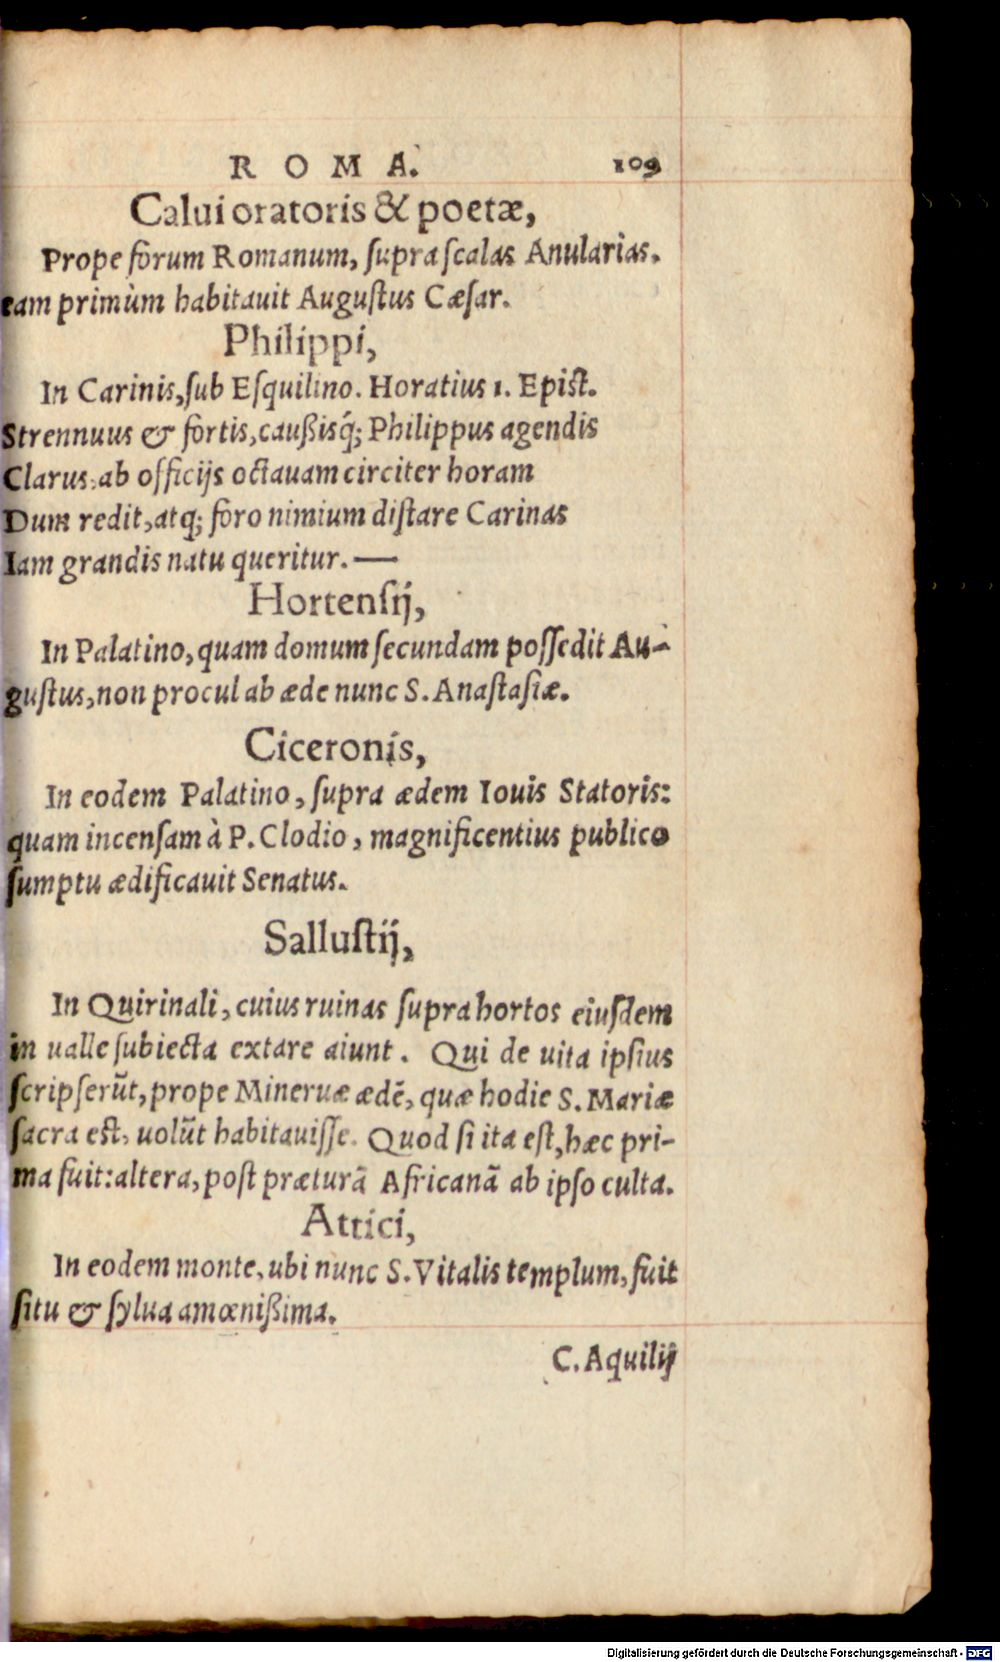 ROMA. 109
Calui oratoris & poetæ,
Prope forum Romanum, ſupra ſcalas Anularias.
eam primùm habitauit Auguſtus Cæſar.
Philippi,
In Carinis, ſub Eſquilino. Horatius 1. Epiſt.
Strennuus & fortis, caußisq́; Philippus agendis
Clarus, ab officijs octauam circiter horam
Dum redit, atq; foro nimium diſtare Carinas
Iam grandis natu queritur. —
Hortenſij,
In Palatino, quam domum ſecundam poſſedit Au-
guſtus, non procul ab æde nunc S. Anaſtaſiæ.
Ciceronis,
In eodem Palatino, ſupra ædem Iouis Statoris:
quam incenſam à P. Clodio, magnificentius publico
ſumptu ædificauit Senatus.
Salluſtij,
In Quirinali, cuius ruinas ſupra hortos eiuſdem
in ualle ſubiecta extare aiunt. Qui de uita ipſius
ſcripſerūt, prope Mineruæ ædē, quæ hodie S. Mariæ
ſacra eſt, uolūt habitauiſſe. Quod ſi ita eſt, hæc pri-
ma fuit: altera, poſt præturā Africanā ab ipſo culta.
Attici,
In eodem monte, ubi nunc S. Vitalis templum, fuit
ſitu & ſylua amœnißima.
C. Aquilij
Digitalisierung gefördert durch die Deutsche Forschungsgemeinschaft - DFG